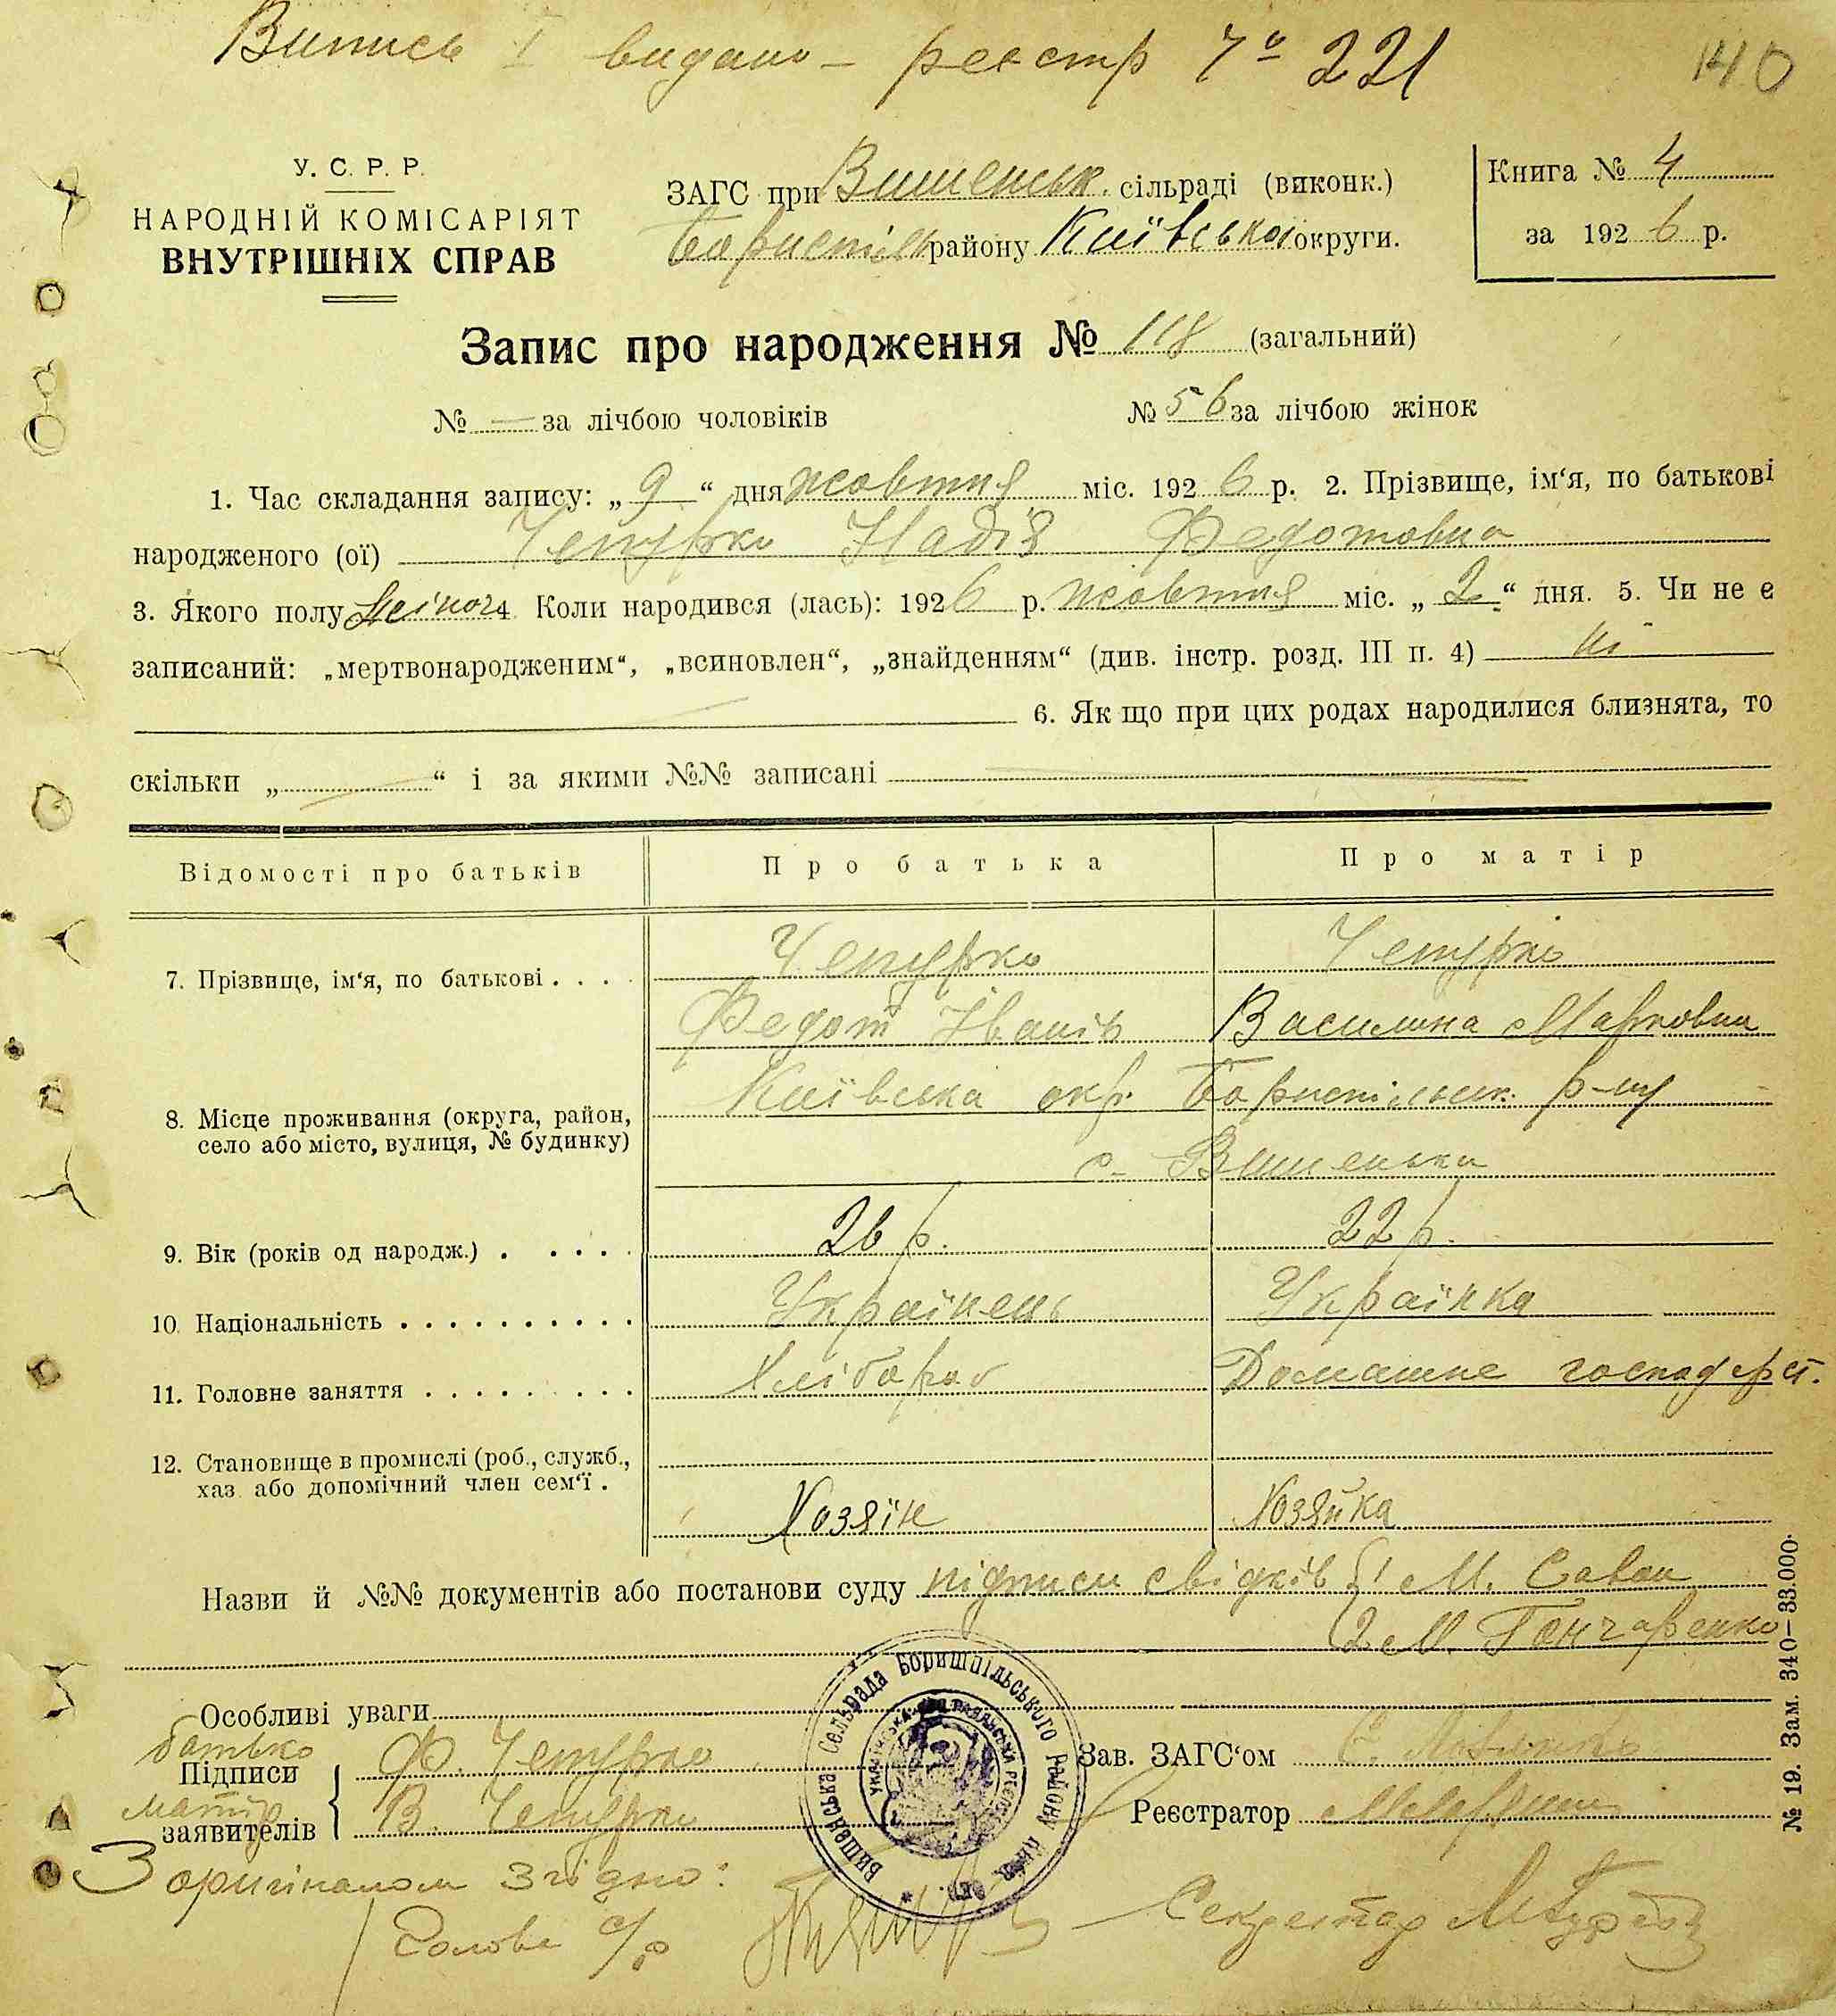 Випись I видано – реєстр № 221
140
У. С. Р. Р.
НАРОДНІЙ КОМІСАРІЯТ
ВНУТРІШНІХ СПРАВ
ЗАГС при Вишеньк. сільраді (виконк.)
Бориспіль району Київської округи.
Книга № 4
за 1926 р.
Запис про народження № 118 (загальний)
№ — за лічбою чоловіків № 56 за лічбою жінок
1. Час складання запису: „ 9 “ дня жовтня міс. 1926 р. 2. Прізвище, ім‘я, по батькові
народженого (ої) Чепурко Надія Федотовна
3. Якого полу жіноч 4 Коли народився (лась): 1926 р. жовтня міс. „ 2 “ дня. 5. Чи не є
записаний: „мертвонародженим“, „всиновлен“, „знайденням“ (див. інстр. розд. III п. 4) ні
6. Як що при цих родах народилися близнята, то
скільки „ — “ і за якими №№ записані —
Відомості про батьків Про батька Про матір
7. Прізвище, ім‘я, по батькові . . . . Чепурко Чепурко
Федот Іванів Василина Марковна
8. Місце проживання (округа, район, Київська окр. Бориспільськ. р-ну
село або місто, вулиця, № будинку) с. Вишеньки
9. Вік (років од народж.) . . . . . 26 р. 22 р.
10. Національність . . . . . . . . . . Українець Українка
11. Головне заняття . . . . . . . . . Хлібороб Домашнє господарст.
12. Становище в промислі (роб., служб.,
хаз. або допомічний член сем‘ї . Хозяїн Хозяйка
Назви й №№ документів або постанови суду підписи свідків 1 М. Саван
2 М. Гончаренко
Особливі уваги
батько
Підписи Ф. Чепурко Зав. ЗАГС‘ом С.
матір
заявителів В. Чепурко Реєстратор
Вишенська Сельрада Боришпільського Району
З оригіналом згідно:
Голова с/р Секретар
№ 19. Зам. 340–33.000.